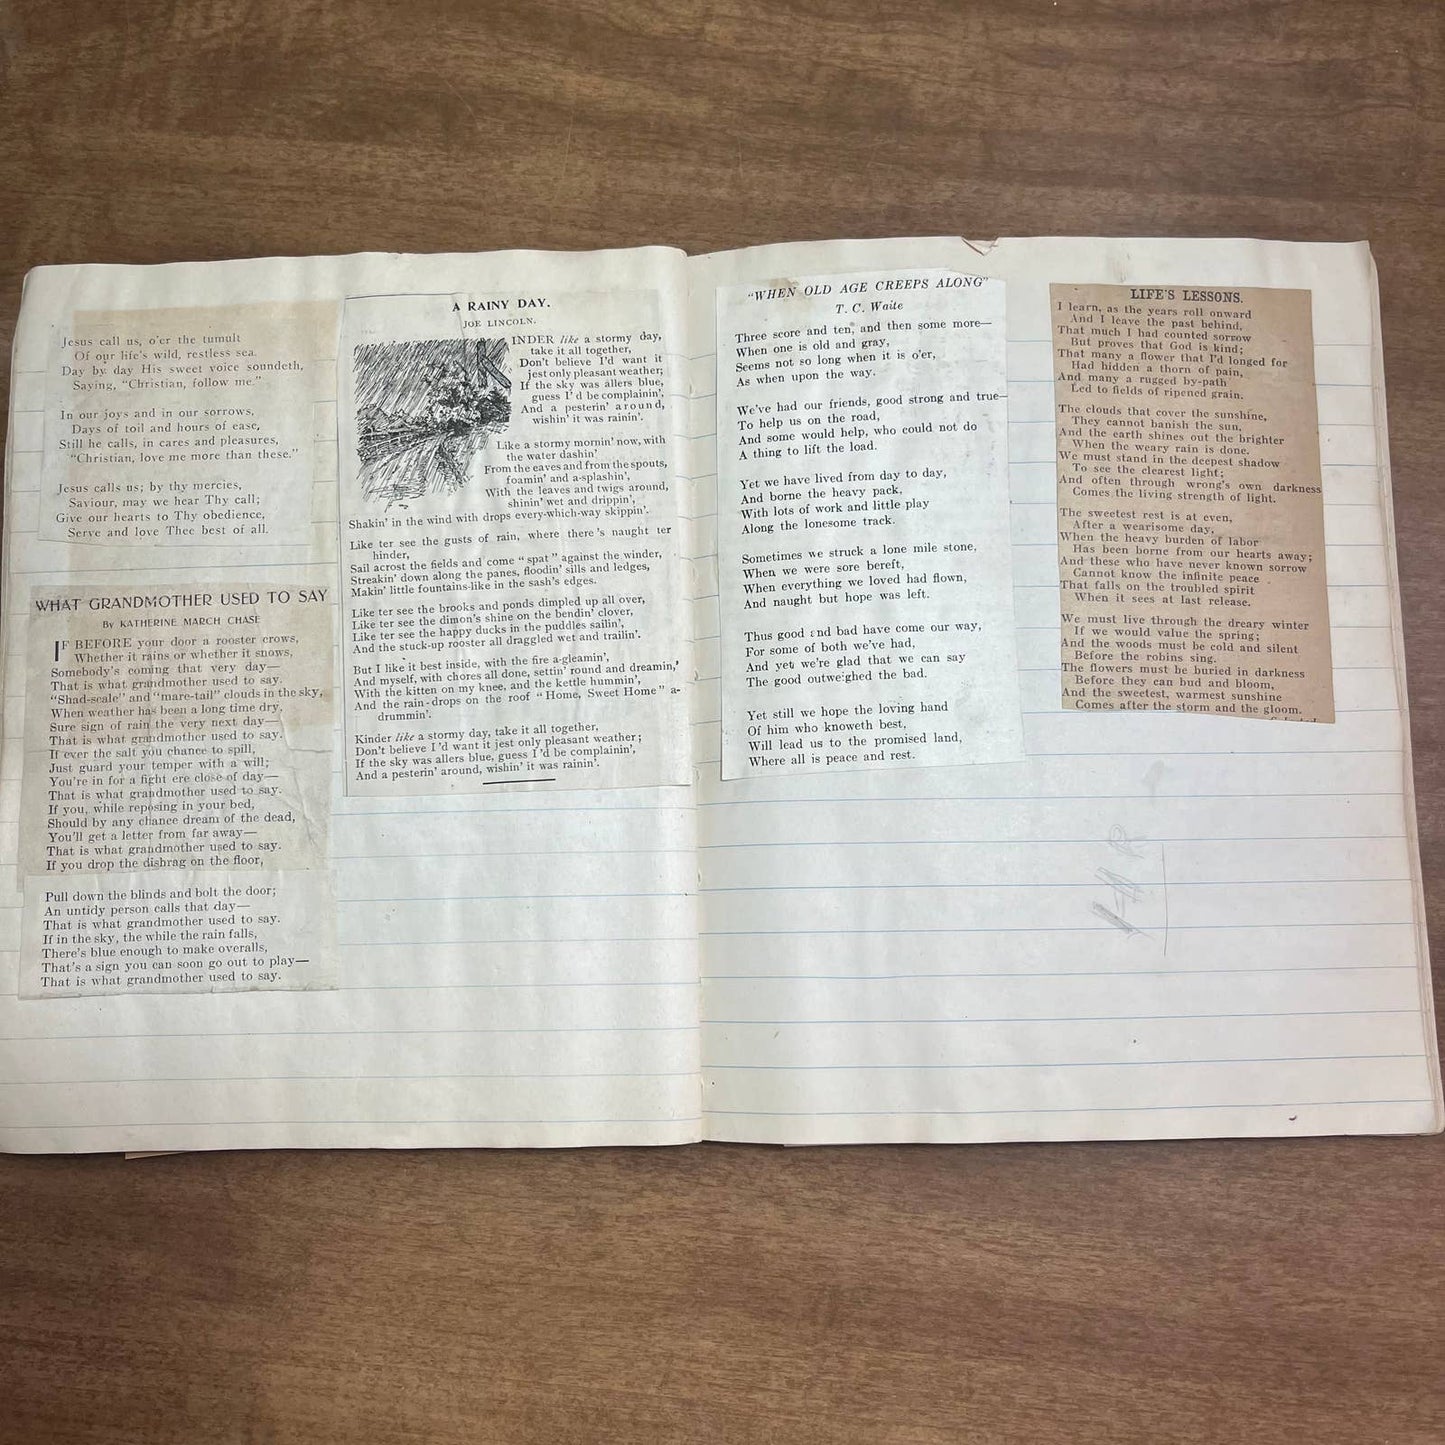 Jesus call us, o'er the tumult
Of our life's wild, restless sea.
Day by day His sweet voice soundeth,
Saying, "Christian, follow me."
In our joys and in our sorrows,
Days of toil and hours of ease,
Still he calls, in cares and pleasures,
"Christian, love me more than these."
Jesus calls us; by thy mercies,
Saviour, may we hear Thy call;
Give our hearts to Thy obedience,
Serve and love Thee best of all.
WHAT GRANDMOTHER USED TO SAY
By KATHERINE MARCH CHASE
IF BEFORE your door a rooster crows,
Whether it rains or whether it snows,
Somebody's coming that very day—
That is what grandmother used to say.
"Shad-scale" and "mare-tail" clouds in the sky,
When weather has been a long time dry,
Sure sign of rain the very next day—
That is what grandmother used to say.
If ever the salt you chance to spill,
Just guard your temper with a will;
You're in for a fight ere close of day—
That is what grandmother used to say.
If you, while reposing in your bed,
Should by any chance dream of the dead,
You'll get a letter from far away—
That is what grandmother used to say.
If you drop the dishrag on the floor,
Pull down the blinds and bolt the door;
An untidy person calls that day—
That is what grandmother used to say.
If in the sky, the while the rain falls,
There's blue enough to make overalls,
That's a sign you can soon go out to play—
That is what grandmother used to say.
A RAINY DAY.
JOE LINCOLN.
INDER like a stormy day,
take it all together,
Don't believe I'd want it
jest only pleasant weather;
If the sky was allers blue,
guess I'd be complainin',
And a pesterin' around,
wishin' it was rainin'.
Like a stormy mornin' now, with
the water dashin'
From the eaves and from the spouts,
foamin' and a-splashin',
With the leaves and twigs around,
shinin' wet and drippin',
Shakin' in the wind with drops every-which-way skippin'.
Like ter see the gusts of rain, where there's naught ter
hinder,
Sail acrost the fields and come "spat" against the winder,
Streakin' down along the panes, floodin' sills and ledges,
Makin' little fountains-like in the sash's edges.
Like ter see the brooks and ponds dimpled up all over,
Like ter see the dimon's shine on the bendin' clover,
Like ter see the happy ducks in the puddles sailin',
And the stuck-up rooster all draggled wet and trailin'.
But I like it best inside, with the fire a-gleamin',
And myself, with chores all done, settin' round and dreamin,'
With the kitten on my knee, and the kettle hummin',
And the rain-drops on the roof "Home, Sweet Home" a-
drummin'.
Kinder like a stormy day, take it all together,
Don't believe I'd want it jest only pleasant weather;
If the sky was allers blue, guess I'd be complainin',
And a pesterin' around, wishin' it was rainin'.
"WHEN OLD AGE CREEPS ALONG"
T. C. Waite
Three score and ten, and then some more—
When one is old and gray,
Seems not so long when it is o'er,
As when upon the way.
We've had our friends, good strong and true—
To help us on the road,
And some would help, who could not do
A thing to lift the load.
Yet we have lived from day to day,
And borne the heavy pack,
With lots of work and little play
Along the lonesome track.
Sometimes we struck a lone mile stone,
When we were sore bereft,
When everything we loved had flown,
And naught but hope was left.
Thus good and bad have come our way,
For some of both we've had,
And yet we're glad that we can say
The good outweighed the bad.
Yet still we hope the loving hand
Of him who knoweth best,
Will lead us to the promised land,
Where all is peace and rest.
LIFE'S LESSONS.
I learn, as the years roll onward
And I leave the past behind,
That much I had counted sorrow
But proves that God is kind;
That many a flower that I'd longed for
Had hidden a thorn of pain,
And many a rugged by-path
Led to fields of ripened grain.
The clouds that cover the sunshine,
They cannot banish the sun,
And the earth shines out the brighter
When the weary rain is done.
We must stand in the deepest shadow
To see the clearest light;
And often through wrong's own darkness
Comes the living strength of light.
The sweetest rest is at even,
After a wearisome day,
When the heavy burden of labor
Has been borne from our hearts away;
And these who have never known sorrow
Cannot know the infinite peace
That falls on the troubled spirit
When it sees at last release.
We must live through the dreary winter
If we would value the spring;
And the woods must be cold and silent
Before the robins sing.
The flowers must be buried in darkness
Before they can bud and bloom,
And the sweetest, warmest sunshine
Comes after the storm and the gloom.